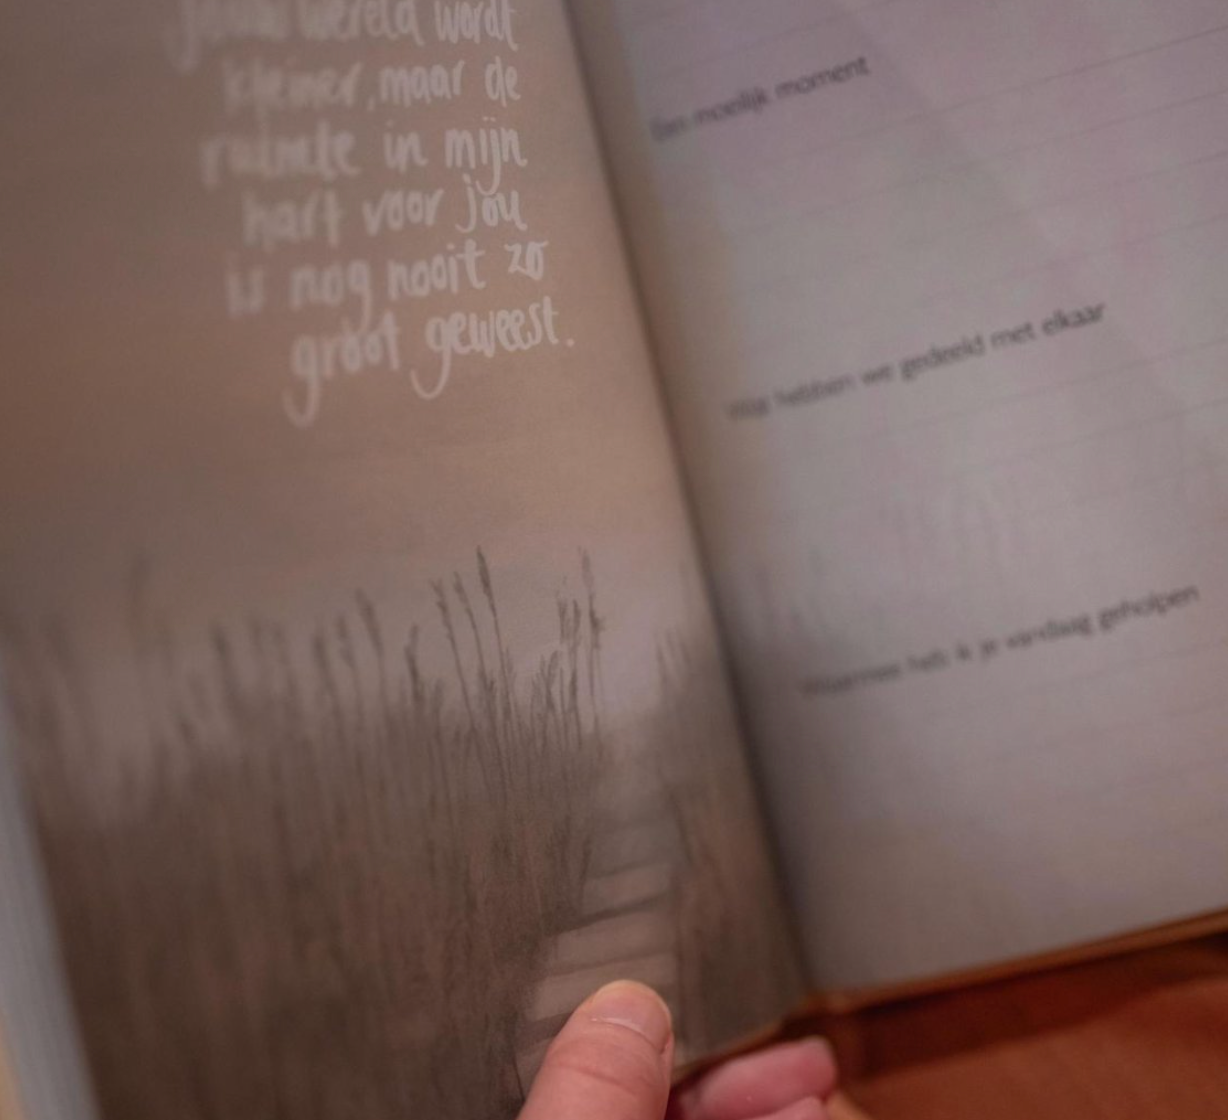 Jouw wereld wordt
kleiner, maar de
ruimte in mijn
hart voor jou
is nog nooit zo
groot geweest.
Een moeilijk moment
Wat hebben we gedeeld met elkaar
Waarmee heb ik je vandaag geholpen